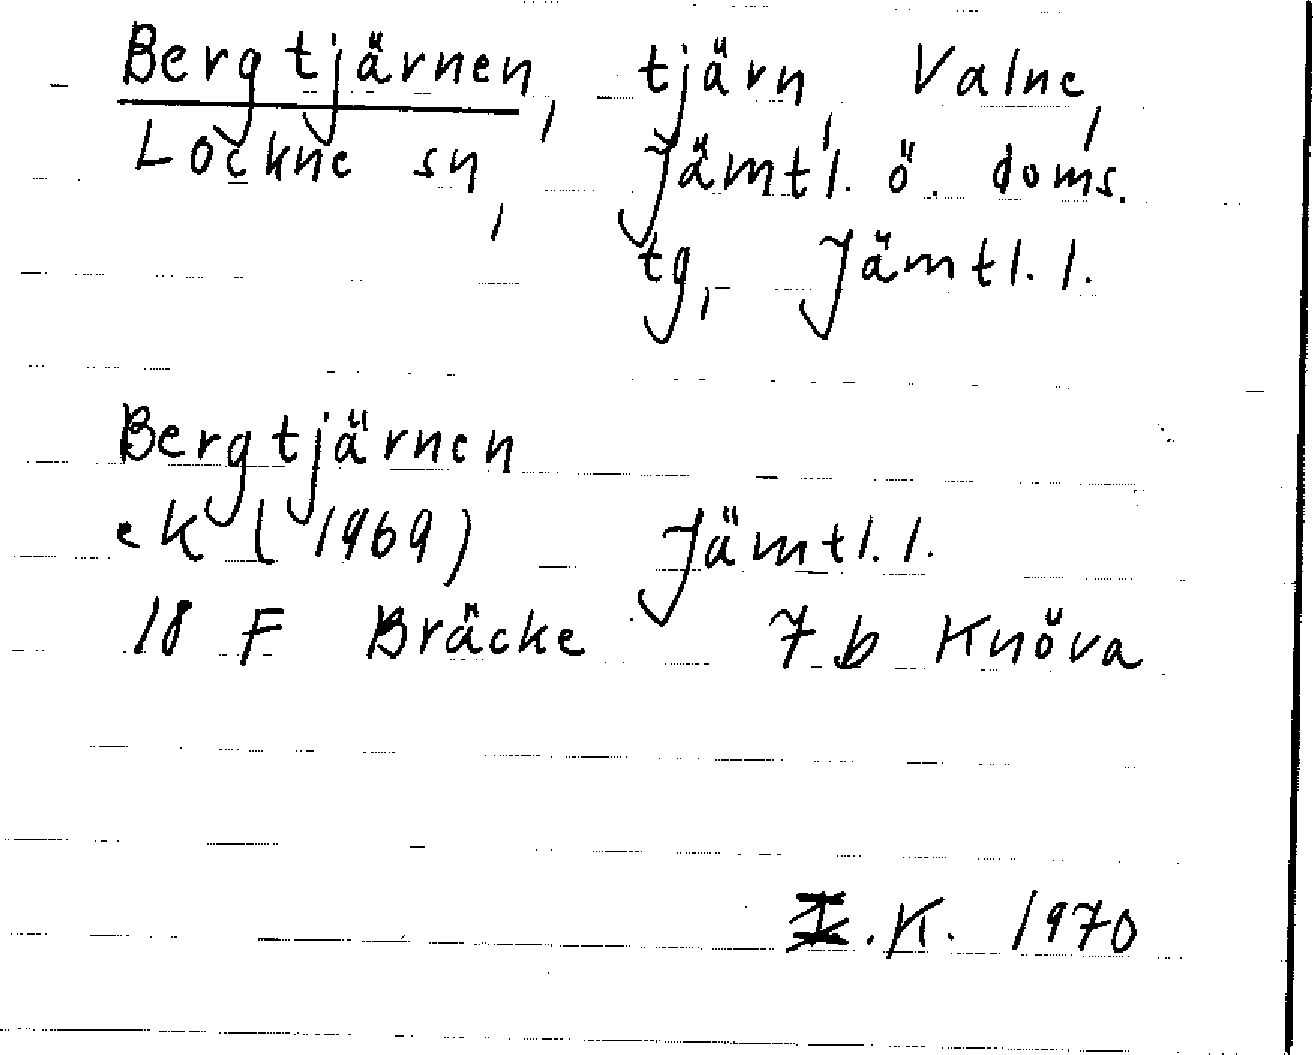 Bergtjärnen, tjärn, Valne,
Lockne sn, Jämtl. ö. doms.
tg, Jämtl. l.
Bergtjärnen
eK (1969) Jämtl. l.
18 F Bräcke 7 b Knöva
K. 1970